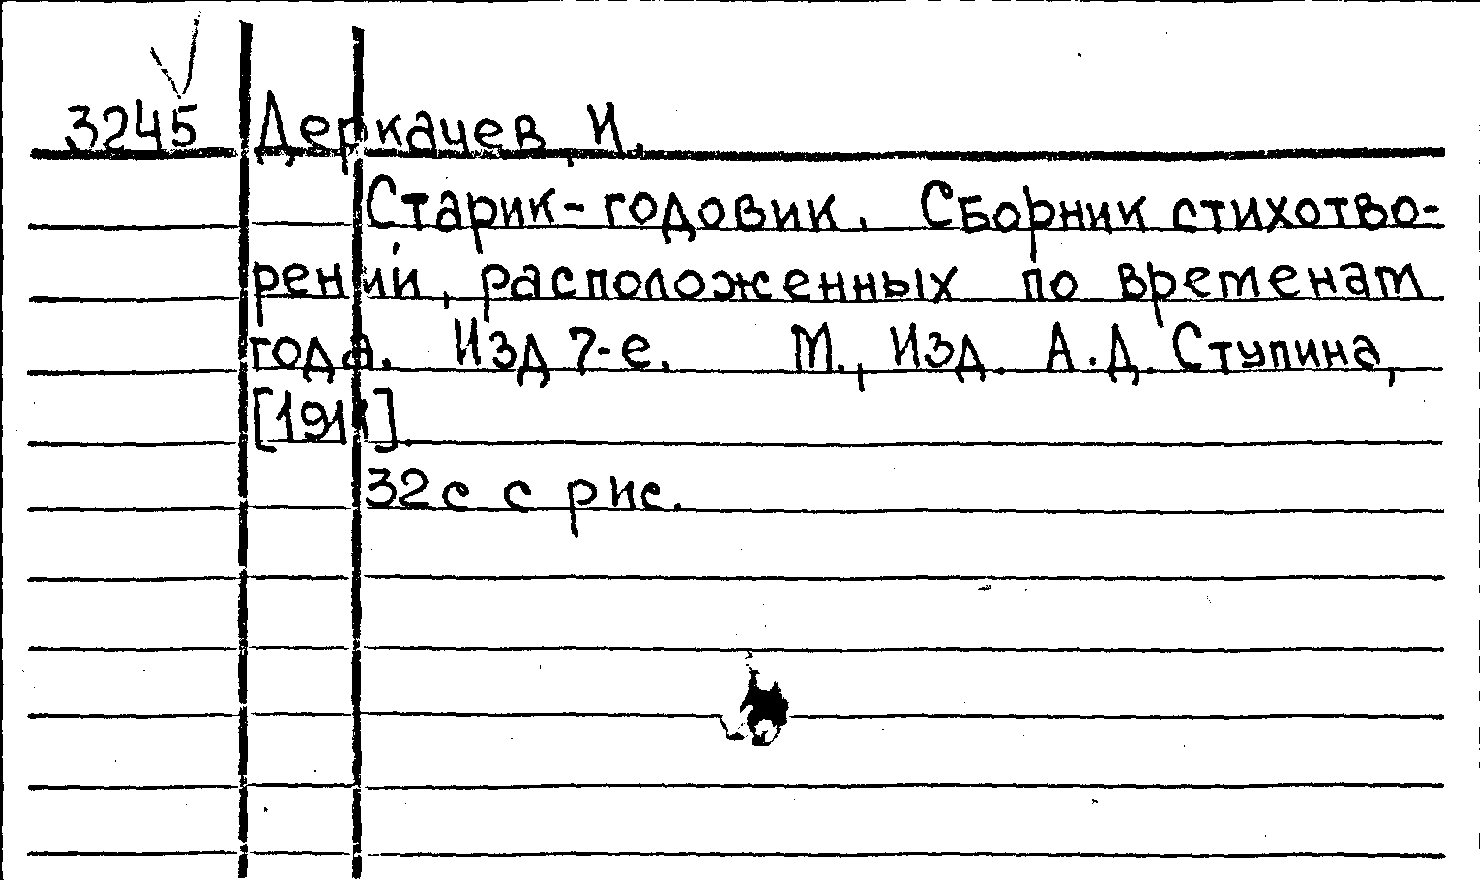 3245 Деркачев, И.
Старик-годовик. Сборник стихотво-
рений, расположенных по временам
года. Изд 7-е. М., Изд. А.Д. Ступина,
[1911].
32с с рис.